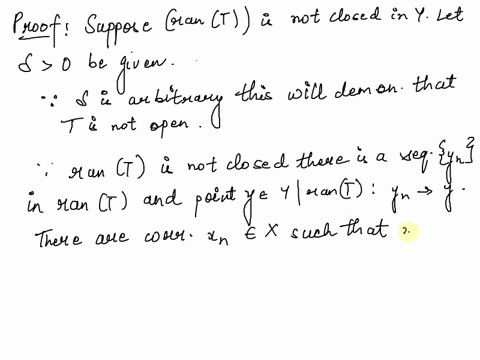 Proof: Suppose (ran (T)) is not closed in Y. Let
δ > 0 be given.
∵ δ is arbitrary this will demon. that
T is not open.
∵ ran (T) is not closed there is a seq. {yn}
in ran (T) and point y ∈ Y | ran(T) : yn → y.
There are corr. xn ∈ X such that